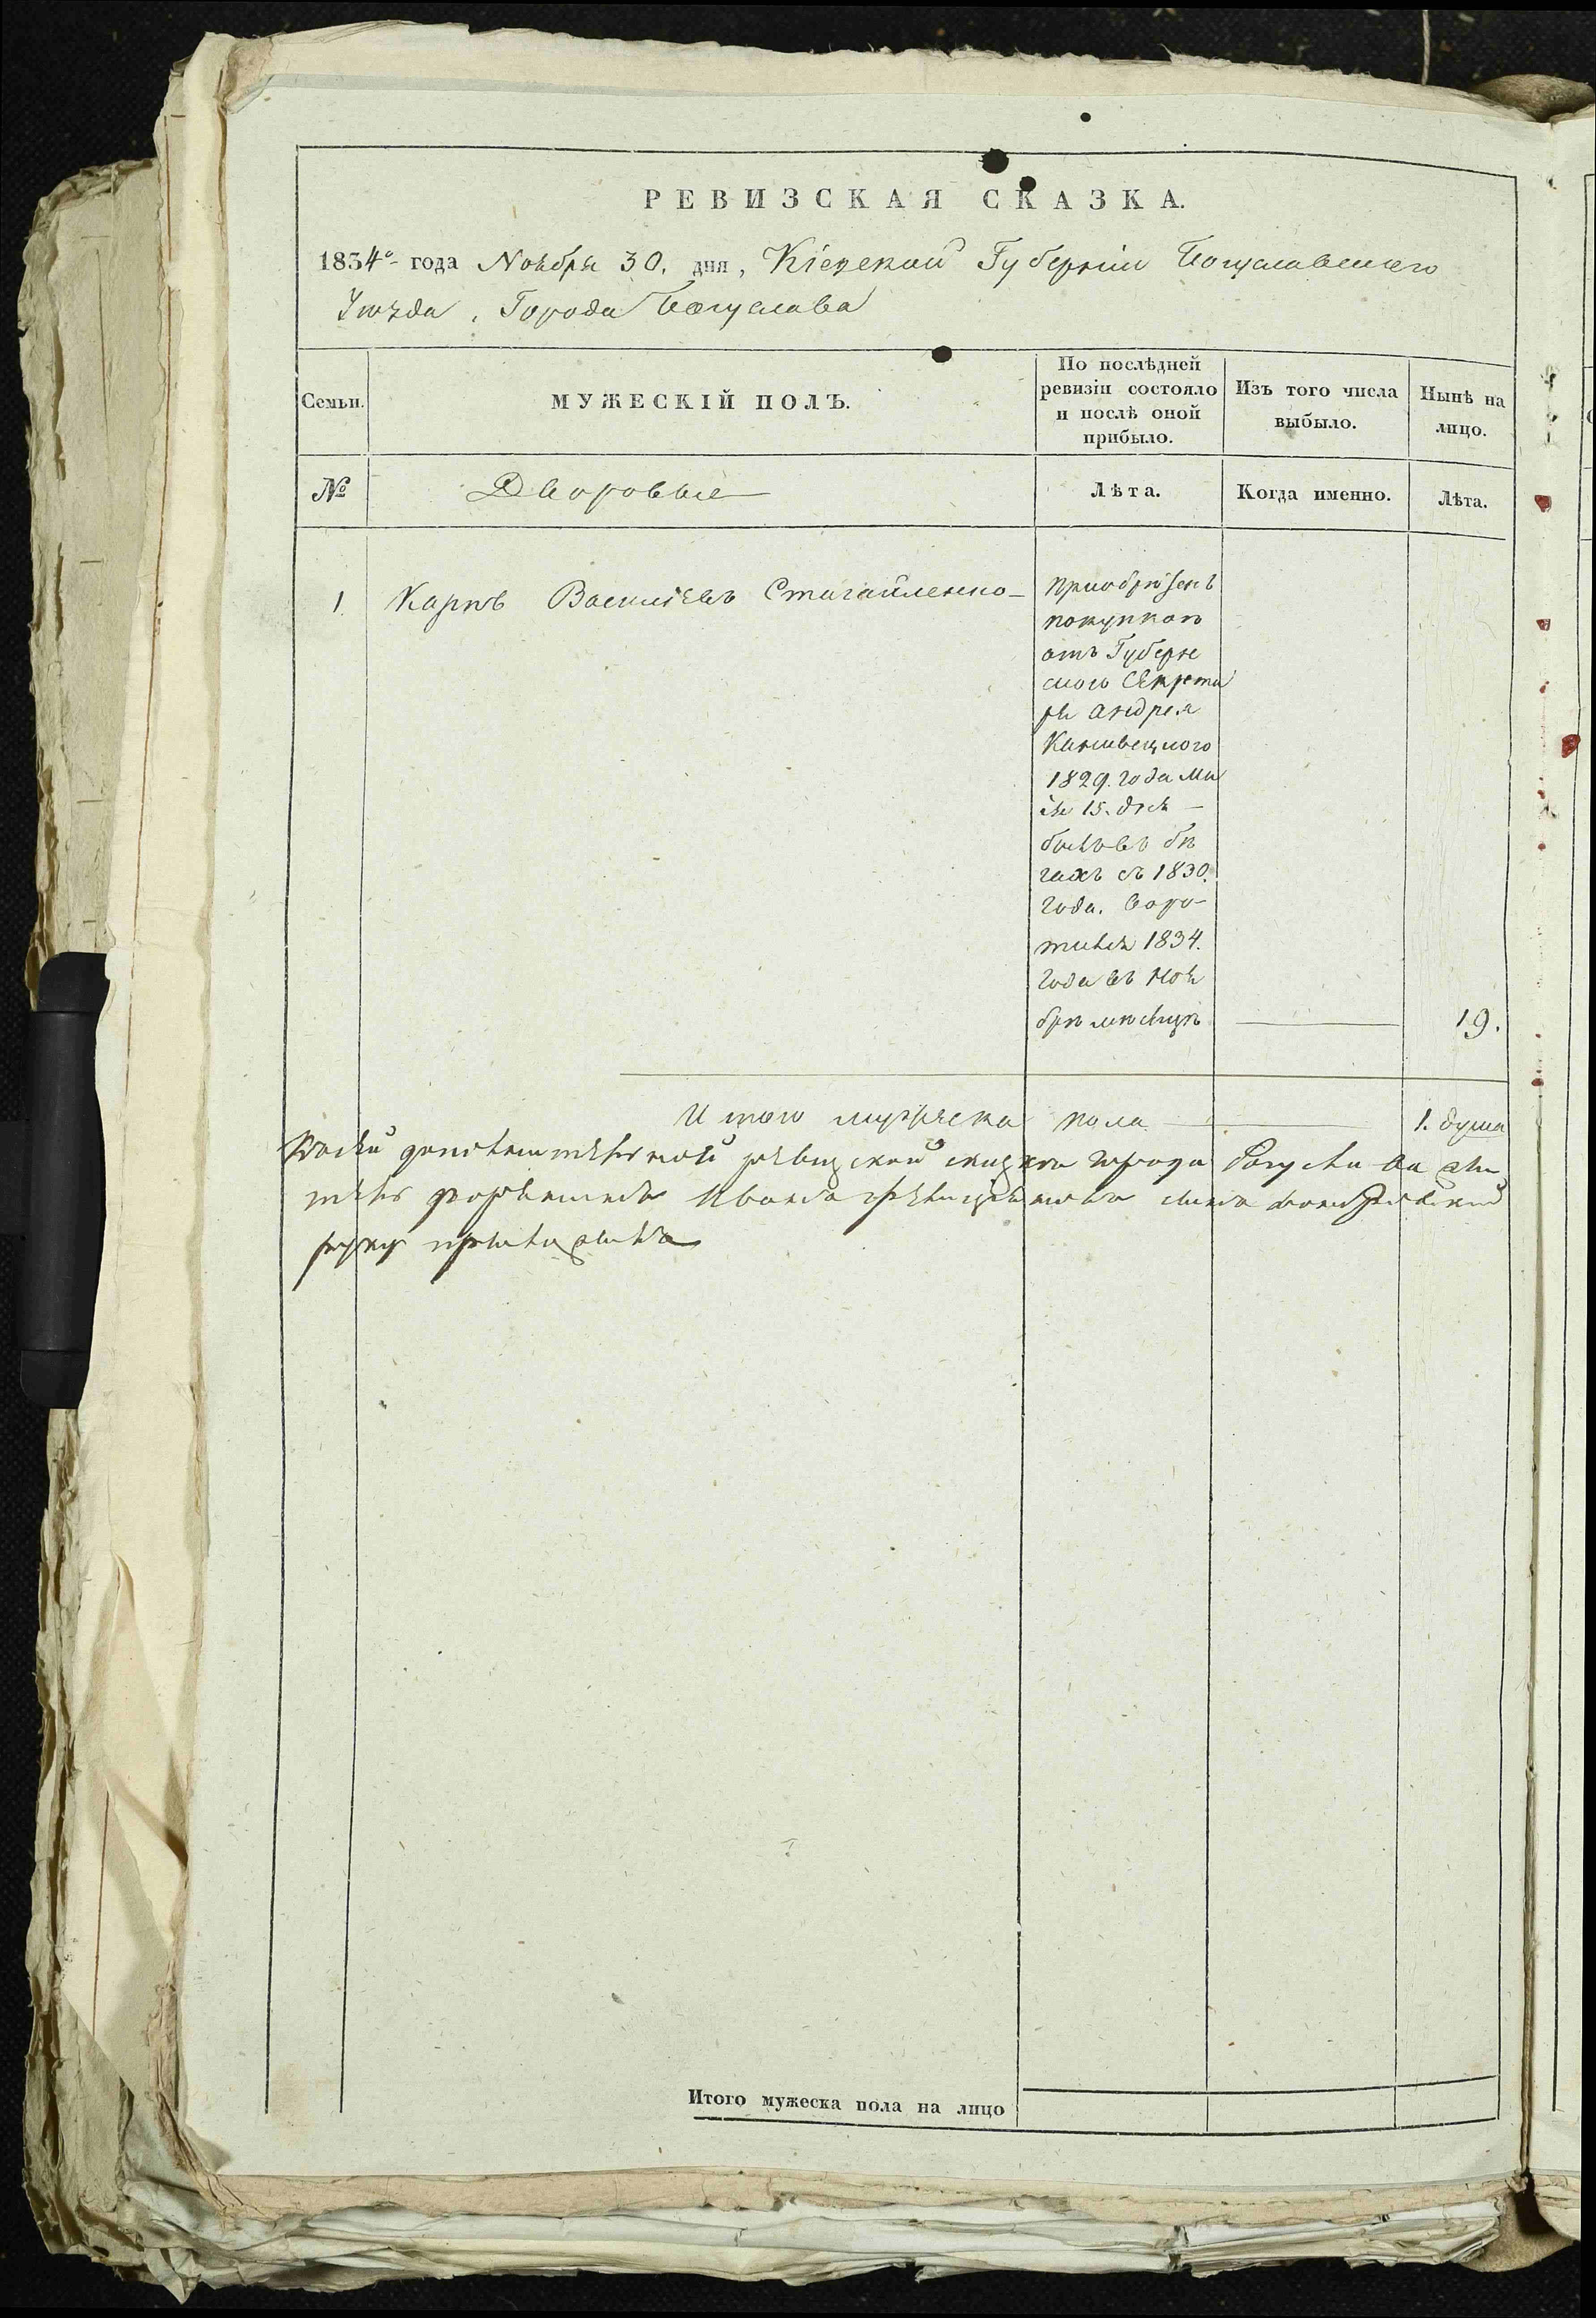 РЕВИЗСКАЯ СКАЗКА.
1834го года Ноября 30. дня, Кіевской Губерніи Богуславского
Уѣзда, Города Богуслава
Семьи.
МУЖЕСКІЙ ПОЛЪ.
По послѣдней
ревизіи состояло
и послѣ оной
прибыло.
Изъ того числа
выбыло.
Нынѣ на
лицо.
№
Дворовые
Лѣта.
Когда именно.
Лѣта.
1. Карпъ Васильевъ
приобрѣтенъ
покупкою
отъ Губерн
ского Секрета
ря Андрея
1829. года Ма
ія 15. дня —
былъ въ бѣ
гахъ съ 1830.
года. Воро-
тился 1834.
года въ Ноя
брѣ мѣсяцѣ
19.
Итого мужеска пола
1. душа
дополнительной ревизской города Богуслава жи
тель Иванъ сынъ
руку приложилъ
Итого мужеска пола на лицо